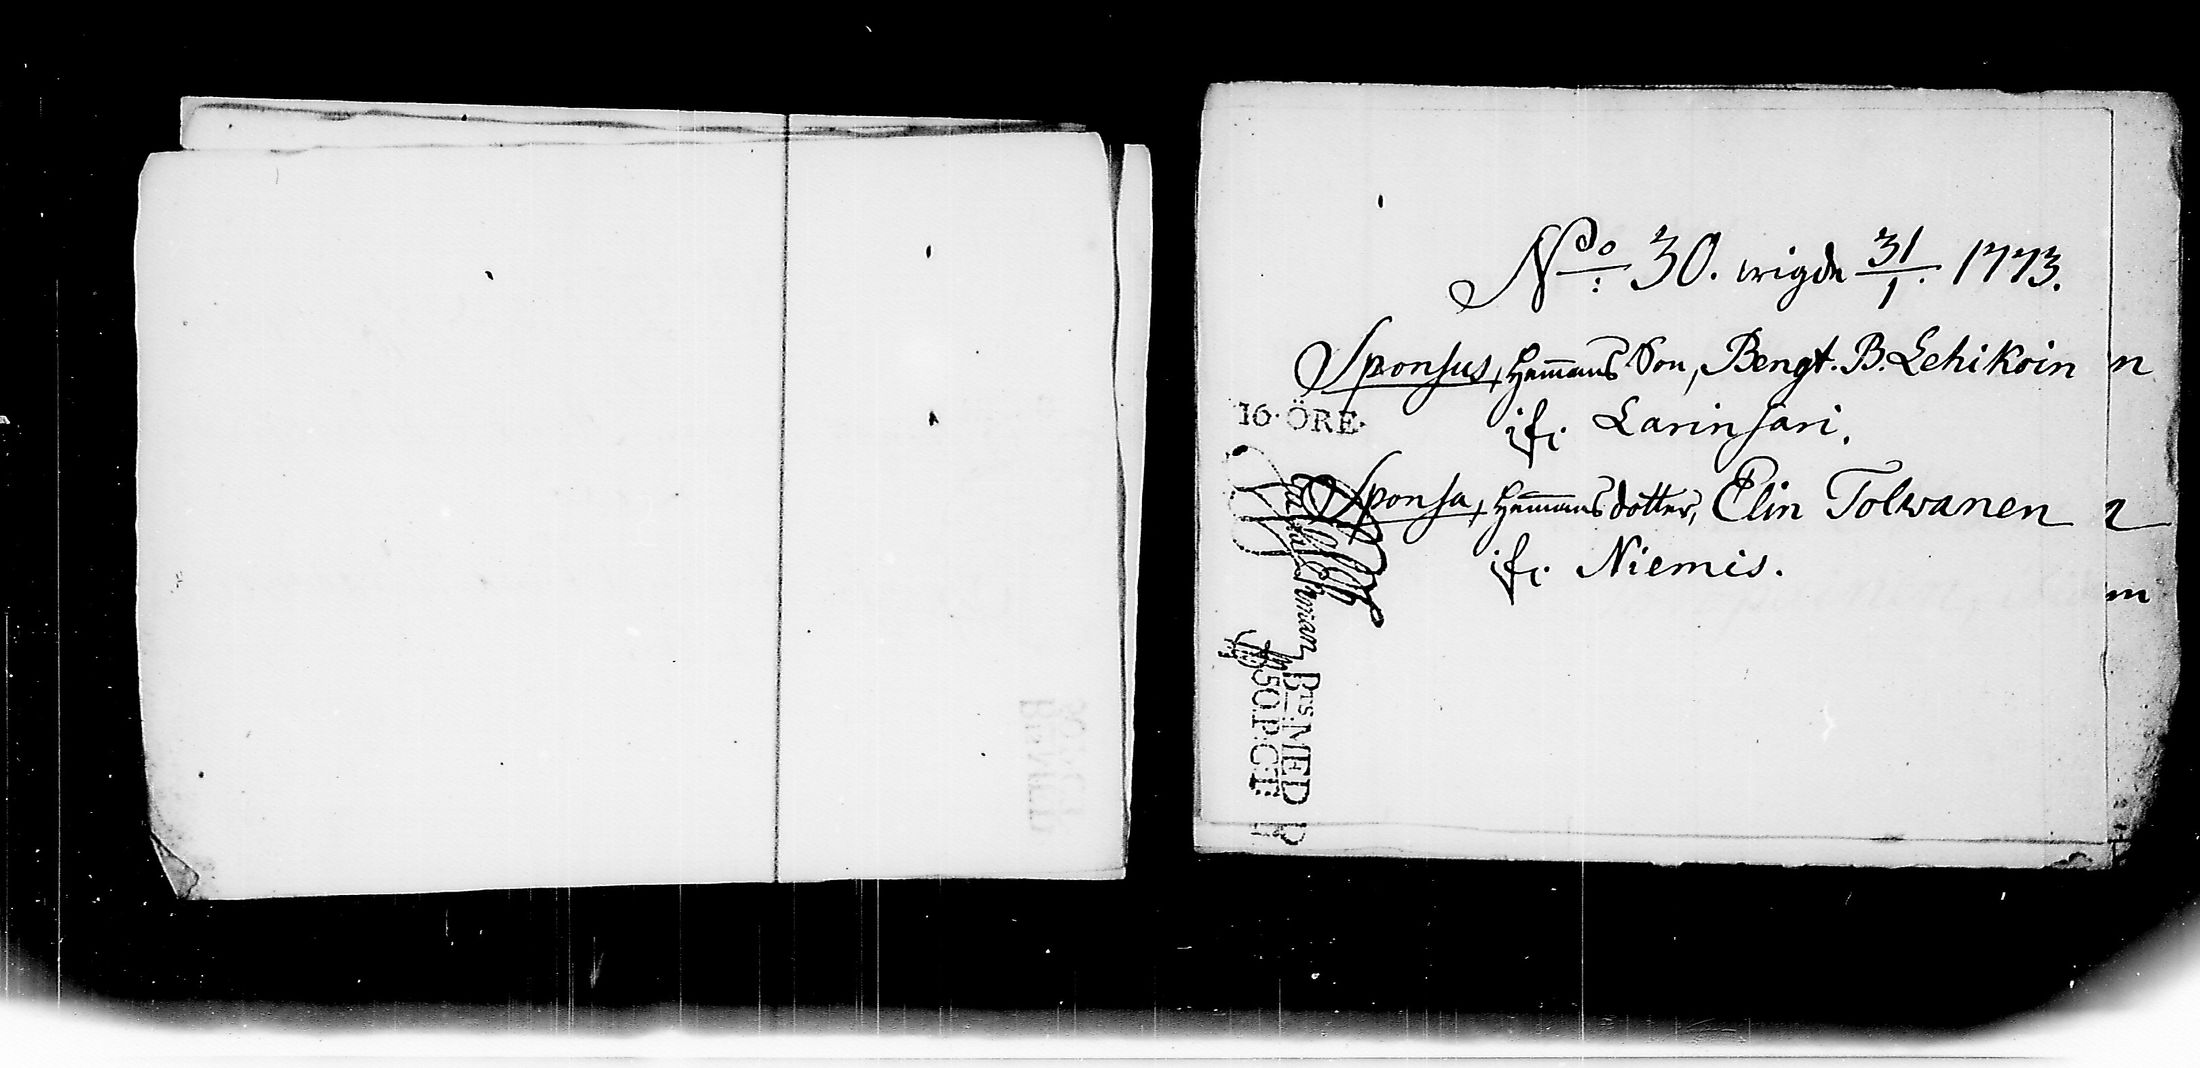 No: 30. wigde 31/1. 1773.
Sponsus, Hem̅ans Son, Bengt. B. Lehikoin n
ifr. Larinsari.
16·ÖRE·
Sponsa, Hem̅ans dotter, Elin Tolwanen
ifr. Niemis.
m
BTS MED P
50.P:CT